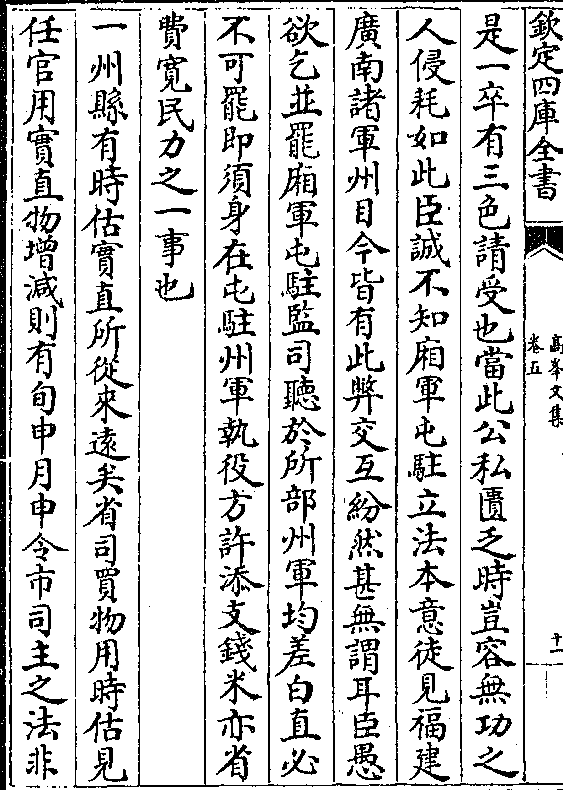 欽定四庫全書
高峯文集
卷五
十一
是一卒有三色請受也當此公私匱乏時豈容無功之
人侵耗如此臣誠不知廂軍屯駐立法本意徒見福建
廣南諸軍州目今皆有此弊交互紛然甚無謂耳臣愚
欲乞並罷廂軍屯駐監司聽於所部州軍均差白直必
不可罷即須身在屯駐州軍執役方許添支錢米亦省
費寛民力之一事也
一州縣有時估實直所從來逺矣省司買物用時估見
任官用實直物增減則有旬申月申令市司主之法非